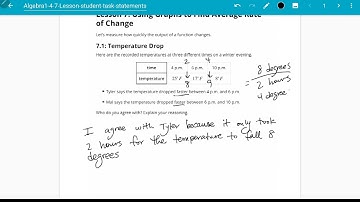 Algebra1-4-7-Lesson-student-task-statements
Lesson 7: Using Graphs to Find Average Rate
of Change
Let's measure how quickly the output of a function changes.
7.1: Temperature Drop
Here are the recorded temperatures at three different times on a winter evening.
2 4
time 4 p.m. 6 p.m. 10 p.m.
temperature 25°F 17°F 8°F
8 9
Tyler says the temperature dropped faster between 4 p.m. and 6 p.m.
Mai says the temperature dropped faster between 6 p.m. and 10 p.m.
Who do you agree with? Explain your reasoning.
= 8 degrees
2 hours
4 degree
I agree with Tyler because it only took
2 hours for the temperature to fall 8
degrees